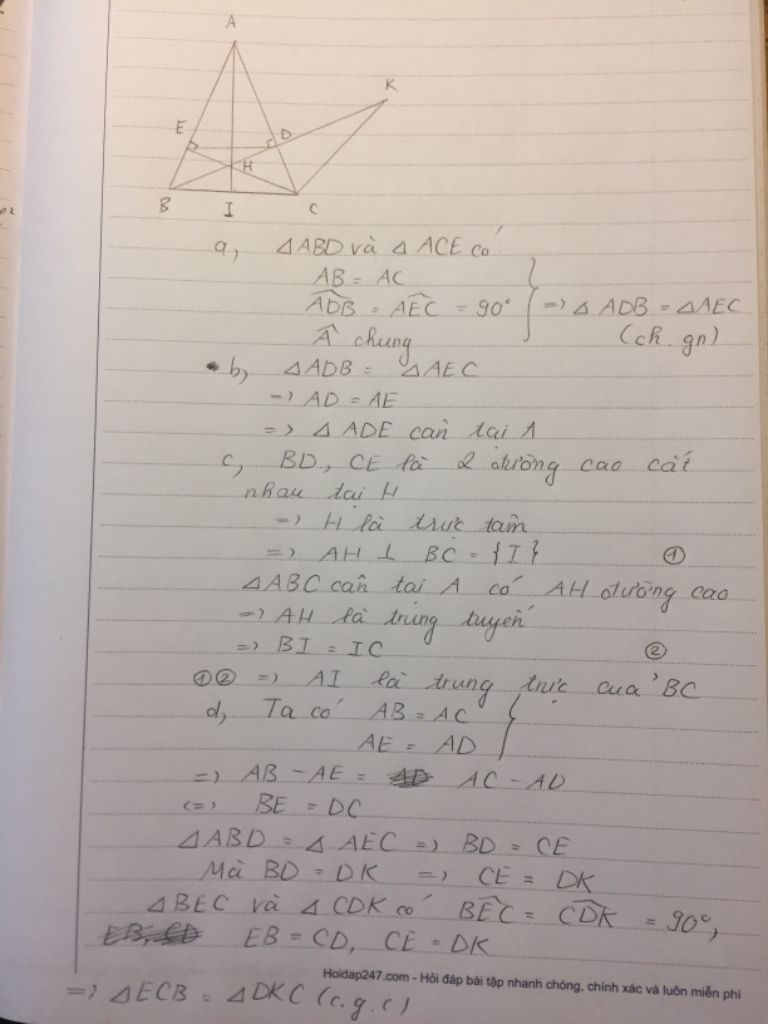 A
K
E
D
H
B
I
C
a, △ABD và △ACE có
AB = AC
ADB = AEC = 90° => △ADB = △AEC
 chung (ch. gn)
b, △ADB = △AEC
=> AD = AE
=> △ADE cân tại A
c, BD, CE là 2 đường cao cắt
nhau tại H
=> H là trực tâm
=> AH ⊥ BC = {I} ①
△ABC cân tại A có AH đường cao
=> AH là trung tuyến
=> BI = IC ②
①② => AI là trung trực của BC
d, Ta có AB = AC
AE = AD
=> AB - AE = AC - AD
<=> BE = DC
△ABD = △AEC => BD = CE
Mà BD = DK => CE = DK
△BEC và △CDK có BEC = CDK = 90°,
EB = CD, CE = DK
Hoidap247.com - Hỏi đáp bài tập nhanh chóng, chính xác và luôn miễn phí
=> △ECB = △DKC (c.g.c)